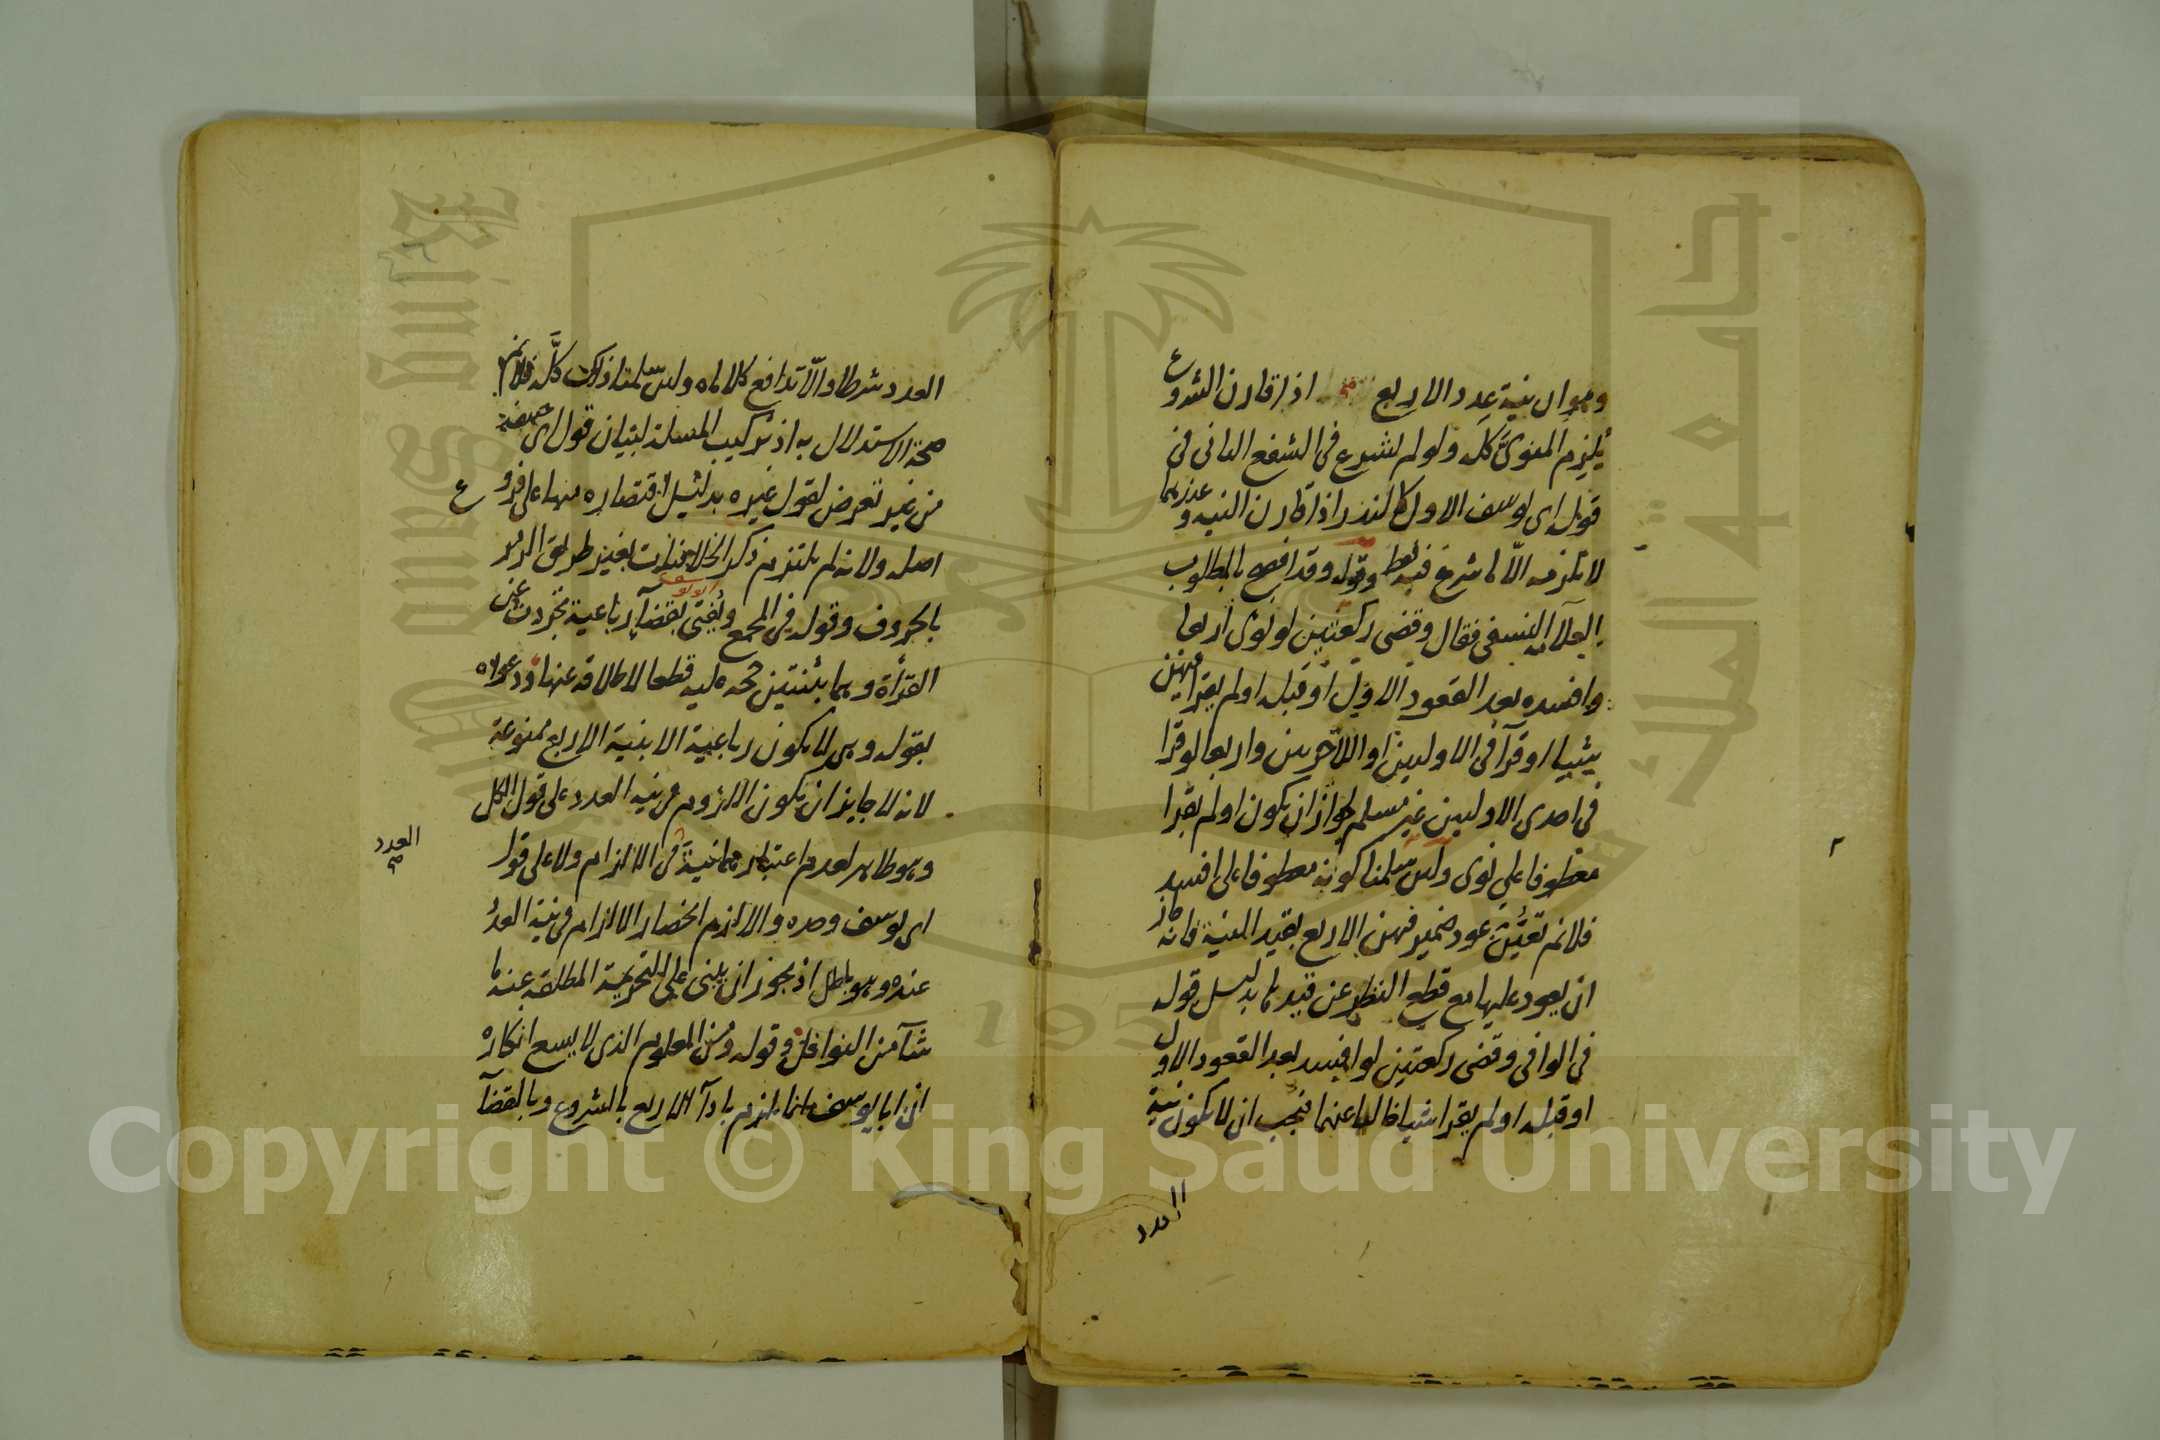 وهو ان نية عدد الاربع اذا قارن الشروع
يلزم المنوى كله ولو لم يشرع في الشفع الثاني في
قول ابى يوسف الاول كالنذر اذا قارن النية وعندهما
لا يلزمه الا ما شرع فيه فقط وقوله وقد افصح بالمطلوب
العلامة النسفى فقال وقضى ركعتين لو نوى اربعا
وافسده بعد القعود الاول او قبله او لم يقرا فيهن
شيئا او قرآ في الاوليين او الاخريين واربعا لو قرا
في احدى الاوليين غير مسلم لجواز ان يكون او لم يقرا
معطوفا على نوى ولئن سلمنا كونه معطوفا على افسد
فلا نم تعين عود ضمير فيهن الاربع بقيد المنية فانه جاز
ان يعود عليها مع قطع النظر عن قيدها بدليل قوله
في الوافى وقضى ركعتين لو افسد بعد القعود الاول
او قبله او لم يقرا شيا خاليا عنها فيجب ان لا يكون نية
العدد
العدد شرطا والا تدافع كلاماه ولئن سلمنا ذلك كله فلا نم
صحة الاستدلال به اذ تركيب المسئلة لبيان قول ابى حنيفة
من غير تعرض لقول غيره بدليل اقتصاره منها على فروع
اصله ولانه لم يلتزم ذكر الخلافيات بغير طريق الرمز
بالحروف وقوله في المجمع ويفتى بقضآء رباعية تجردت عن
ابو يوسف
القرأة وهما بثنتين حجة عليه قطعا لاطلاقه عنها ودعواه
بقوله وهى لا يكون رباعية الا بنية الاربع ممنوعة
لانه لا جايز ان يكون اللزوم من نية العدد على قول الكل
وهو ظاهر لعدم اعتبارهما نية في الالزام ولا على قول
العدد
صح
ابى يوسف وحده والا لزم انحصار الالزام في نية العدد
عنده وهو باطل اذ يجوز ان يبنى على التحريمة المطلقة عنه ما
شآء من النوافل وقوله ومن المعلوم الذى لا يسع انكاره
ان ابا يوسف انما يلزم بادآء الاربع بالشروع وبالقضآء
Copyright © King Saud University
King Saud University
جامعة الملك سعود
1957